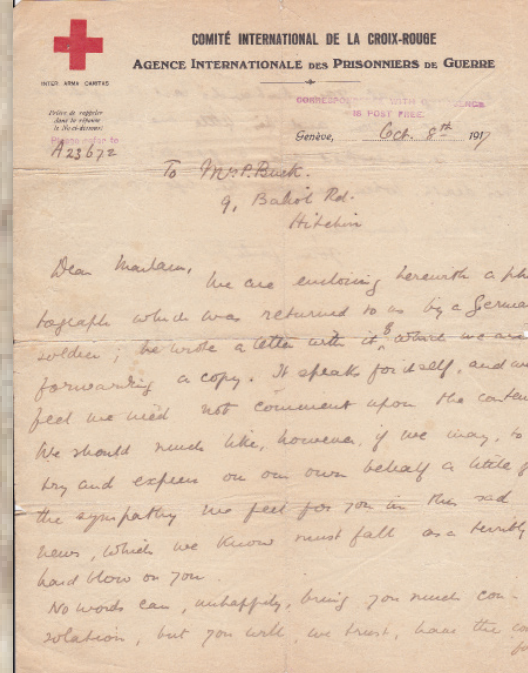 COMITÉ INTERNATIONAL DE LA CROIX-ROUGE
AGENCE INTERNATIONALE DES PRISONNIERS DE GUERRE
INTER ARMA CARITAS
CORRESPONDENCE WITH
IS POST FREE.
Prière de rappeler
dans la réponse
le No ci-dessous
Please refer to
A 23672
Genève, Oct. 8th 1917
To Mrs P. Buck.
9, Baliol Rd.
Hitchin
Dear Madam,
We are enclosing herewith a pho
tograph which was returned to us by a German
soldier; he wrote a letter with it, of which we are
forwarding a copy. It speaks for itself, and we
feel we need not comment upon the conten
We should much like, however, if we may, to
try and express on our own behalf a little of
the sympathy we feel for you in this sad
news, which we know must fall as a terribly
hard blow on you.
No words can, unhappily, bring you much con-
solation, but you will, we trust, have the